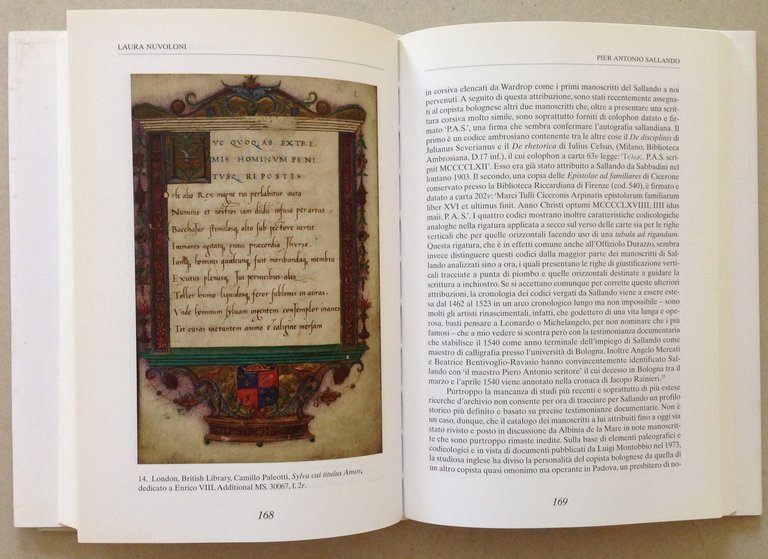 LAURA NUVOLONI
2.
HVC QVOQ. AB. EXTRE
MIS HOMINVM PENI
TVSQ. REPOSTIS
Orbe alio Rex magne tui perlabitur aura
Numinis et nostros iam dudū infusa per artus
Bacchatur stimulosq. alto sub pectore vertit
Immanes agitatq. animi praecordia Thyrso.
Iamq. hominis qualcunq. fuit moribundaq. membra
Excutiens plenusq. Iui pernicibus alis
Tollor humo liquidoq. feror sublimis in auras.
Vnde hominum Sylvam ingentem contemplor inanes
Tot curas iactantem animo e caligine mersam
14. London, British Library, Camillo Paleotti, Sylva cui titulus Amor,
dedicato a Enrico VIII, Additional MS. 30067, f. 2r.
168
PIER ANTONIO SALLANDO
in corsiva elencati da Wardrop come i primi manoscritti del Sallando a noi
pervenuti. A seguito di questa attribuzione, sono stati recentemente assegna-
ti al copista bolognese altri due manoscritti che, oltre a presentare una scrit-
tura corsiva molto simile, sono forniti di colophon datato e fir-
mato 'P.A.S.', una firma che sembra confermare l'autografia sallandiana. Il
primo è un codice ambrosiano contenente tra le altre cose il De disciplinis di
Julianus Severianus e il De rhetorica di Iulius Celsus, (Milano, Biblioteca
Ambrosiana, D.17 inf.), il cui colophon a carta 63v legge: 'Τελως. P.A.S. scrip-
sit MCCCCLXII'. Esso era già stato attribuito a Sallando da Sabbadini nel
lontano 1903. Il secondo, una copia delle Epistolae ad familiares di Cicerone
conservato presso la Biblioteca Riccardiana di Firenze (cod. 540), è firmato e
datato a carta 202r: 'Marci Tulli Ciceronis Arpinatis epistolarum familiarum
liber XVI et ultimus finit. Anno Christi optumi MCCCCLXVIIII, IIII idus
maii. P. A. S.' I quattro codici mostrano inoltre caratteristiche codicologiche
analoghe nella rigatura applicata a secco sul verso delle carte sia per le righe
verticali che per quelle orizzontali facendo uso di una tabula ad rigandum.
Questa rigatura, che è in effetti comune anche all'Offiziolo Durazzo, sembra
invece distinguere questi codici dalla maggior parte dei manoscritti di Sal-
lando analizzati sino a ora, i quali presentano le righe di giustificazione verti-
cali tracciate a punta di piombo e quelle orizzontali destinate a guidare la
scrittura a inchiostro. Se si accettano comunque per corrette queste ulteriori
attribuzioni, la cronologia dei codici vergati da Sallando viene a essere este-
sa dal 1462 al 1523 in un arco cronologico lungo ma non impossibile – sono
molti gli artisti rinascimentali, infatti, che godettero di una vita lunga e ope-
rosa, basti pensare a Leonardo o Michelangelo, per non nominare che i più
famosi – che a mio vedere si scontra però con la testimonianza documentaria
che stabilisce il 1540 come anno terminale dell'impiego di Sallando come
maestro di calligrafia presso l'università di Bologna. Inoltre Angelo Mercati
e Beatrice Bentivoglio-Ravasio hanno convincentemente identificato Sal-
lando con 'il maestro Piero Antonio scritore' il cui decesso in Bologna tra il
marzo e l'aprile 1540 viene annotato nella cronaca di Jacopo Raineri.
Purtroppo la mancanza di studi più recenti e soprattutto di più estese
ricerche d'archivio non consente per ora di tracciare per Sallando un profilo
storico più definito e basato su precise testimonianze documentarie. Non è
un caso, dunque, che il catalogo dei manoscritti a lui attribuiti fino a oggi sia
stato rivisto e posto in discussione da Albinia de la Mare in note manoscrit-
te che sono purtroppo rimaste inedite. Sulla base di elementi paleografici e
codicologici e in vista di documenti pubblicata da Luigi Montobbio nel 1973,
la studiosa inglese ha diviso la personalità del copista bolognese da quella di
un altro copista quasi omonimo ma operante in Padova, un presbitero di no-
169